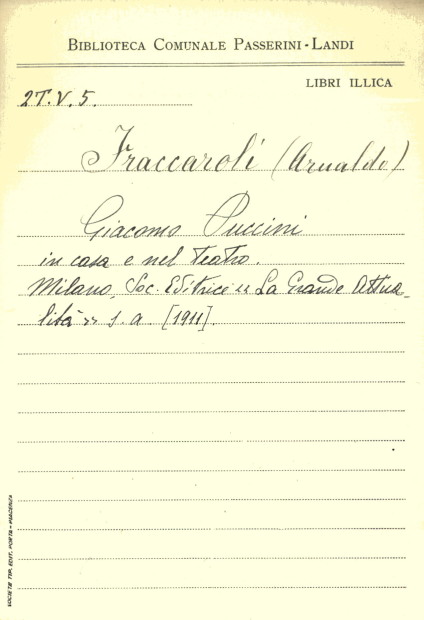 BIBLIOTECA COMUNALE PASSERINI-LANDI
LIBRI ILLICA
2T.V.5.
Fraccaroli (Arnaldo)
Giacomo Puccini
in casa e nel teatro.
Milano, Soc. Editrice « La Grande Attua-
lità » s.a. [1911].
SOCIETÀ TIP. EDIT. PORTA - PIACENZA